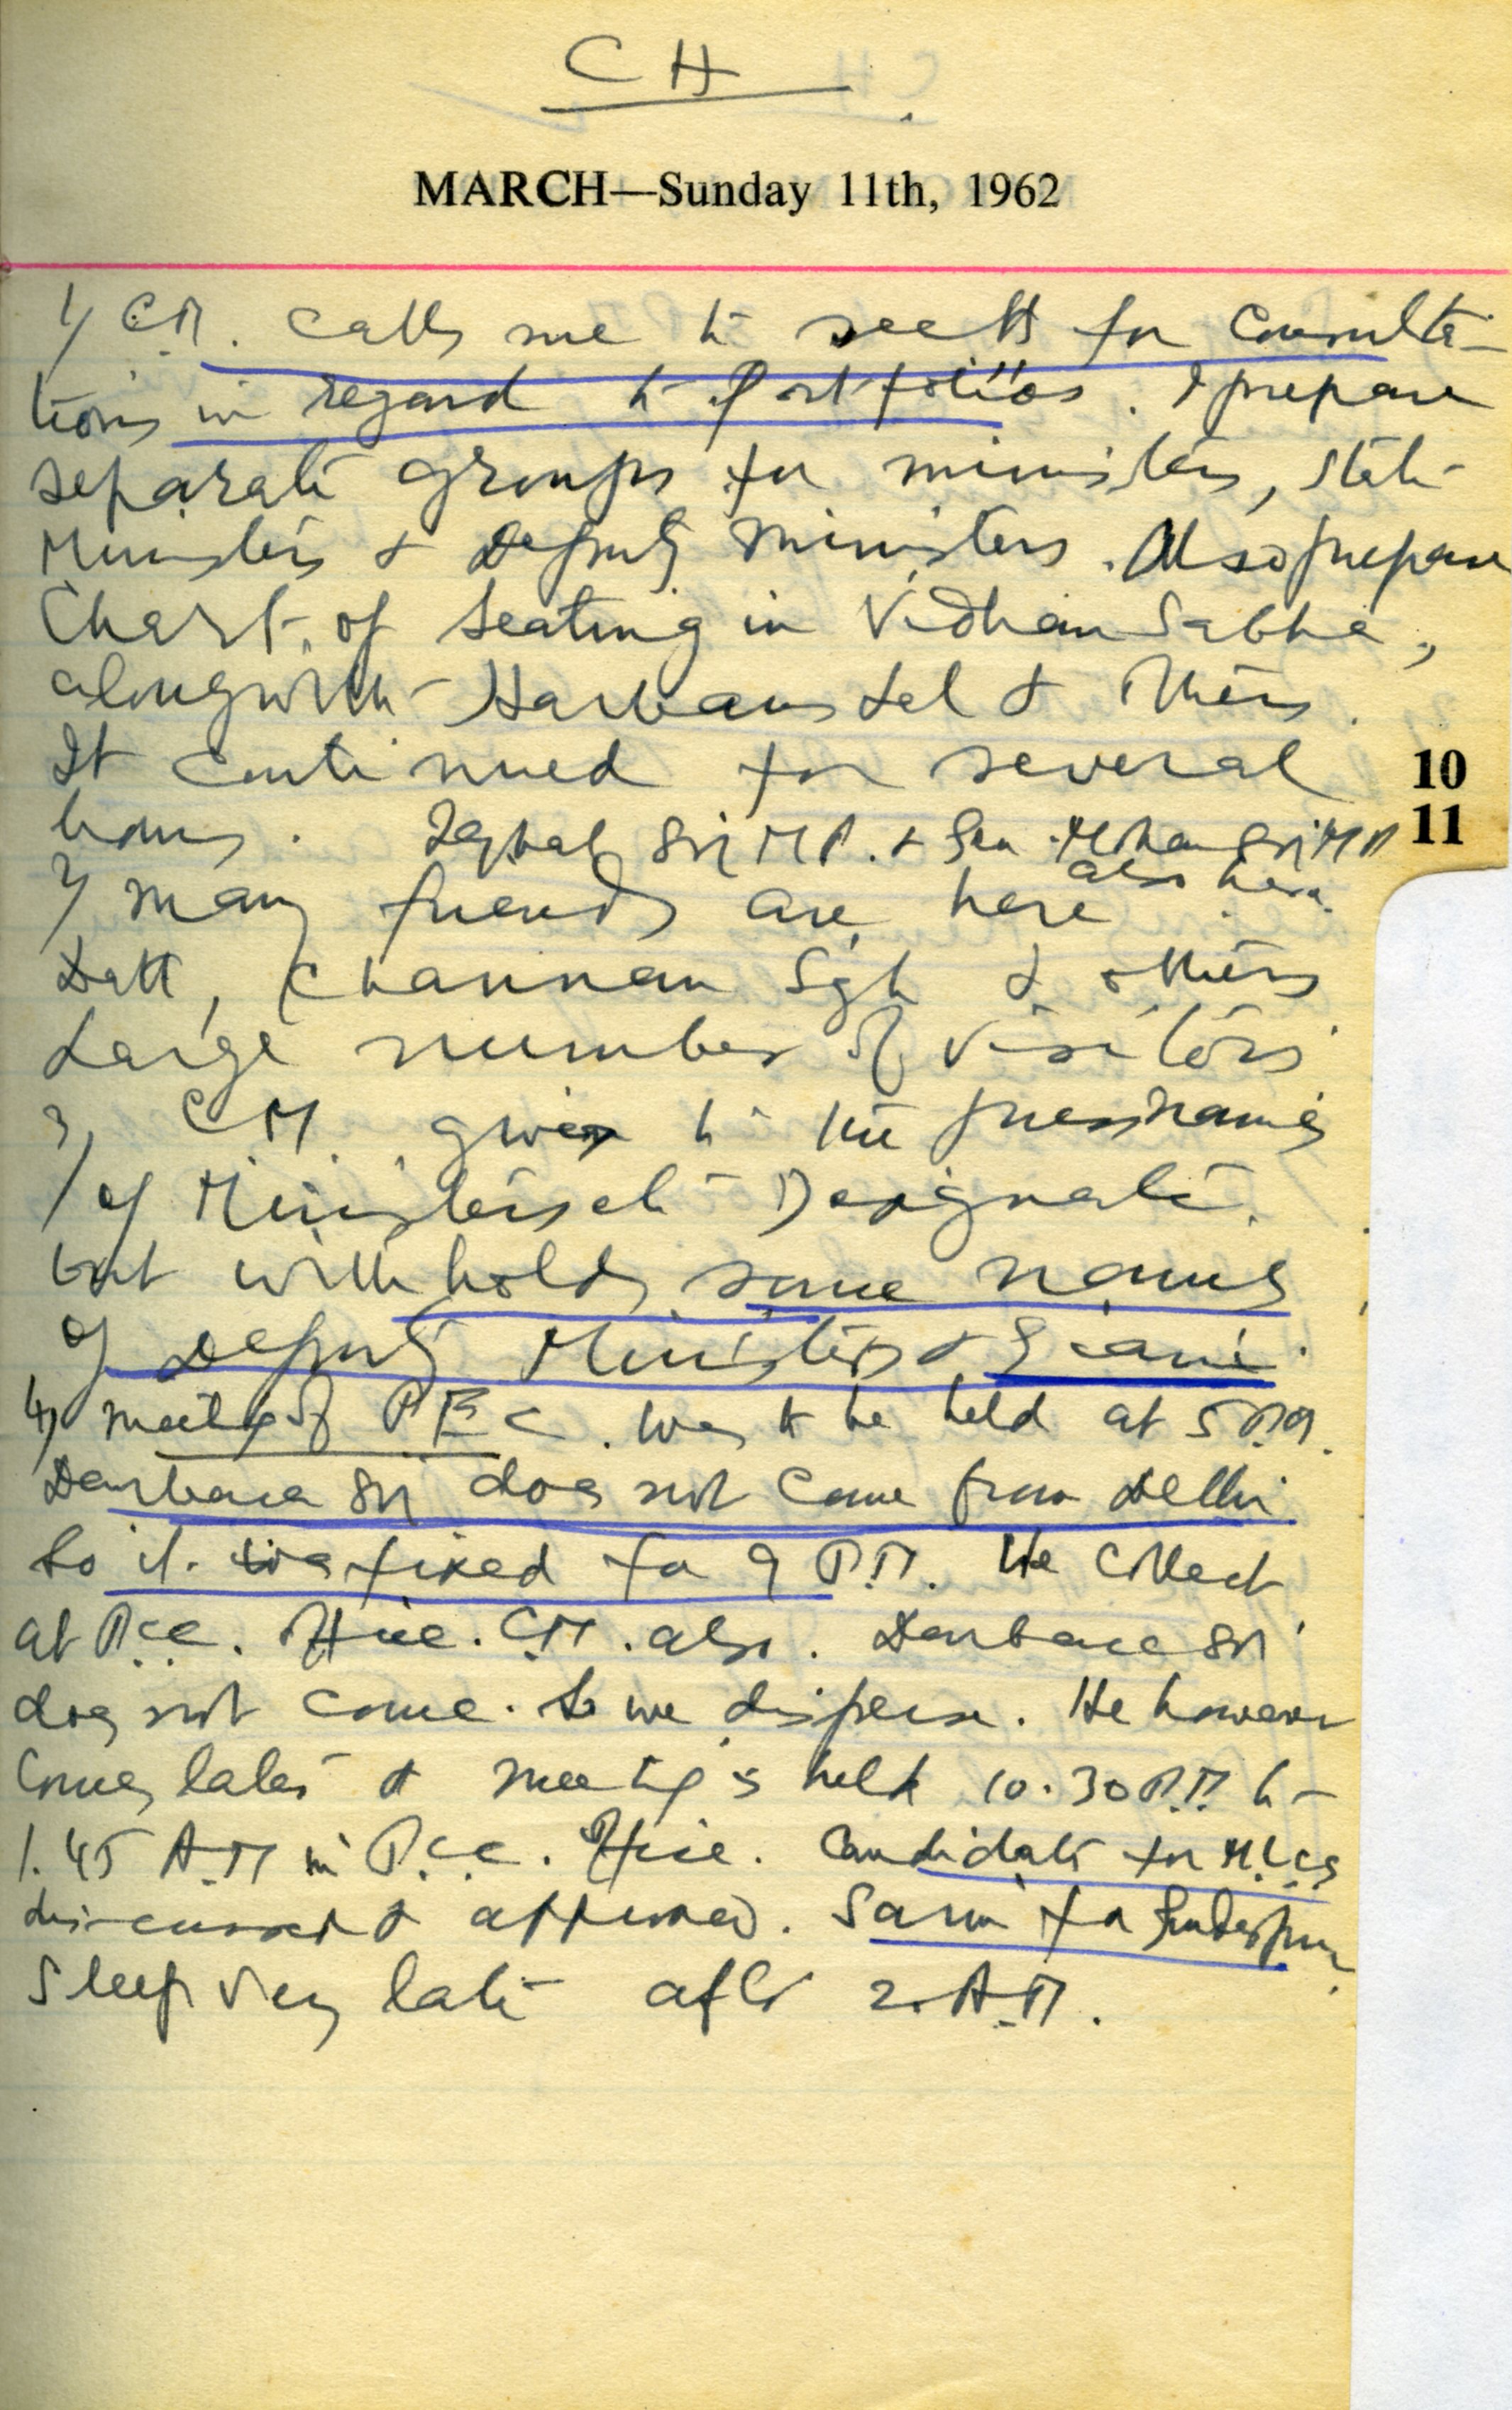 CH
MARCH—Sunday 11th, 1962
1/ C.M. calls me to sectt for Consulta-
tions in regard to Portfolios. I prepare
separate groups for ministers, State
Ministers & Deputy Ministers. Also prepare
Chart of seating in Vidhan Sabha,
alongwith Harbans Lal & others.
It continued for several
10
hours. Iqbal SN MP. & Gen. Mohan SN MP
11
also here.
2/ Many friends are here
Datt, Channan Sgh & others
Large number of visitors
3/ C.M. gives to the press names
of Ministers Designate.
but withholds some names
of Deputy Ministers & Giani.
4/ Meeting of P.E.C. was to be held at 5 P.M.
Darbara SN does not come from Delhi
So it was fixed for 9 P.M. We collect
at P.C.C. Office. C.M. also. Darbara SN
does not come. So we disperse. He however
comes later & meeting is held 10.30 P.M. to
1.45 A.M in P.C.C. Office. Candidates for M.L.Cs
discussed & approved. Sarin for
Sleep very late after 2. A.M.